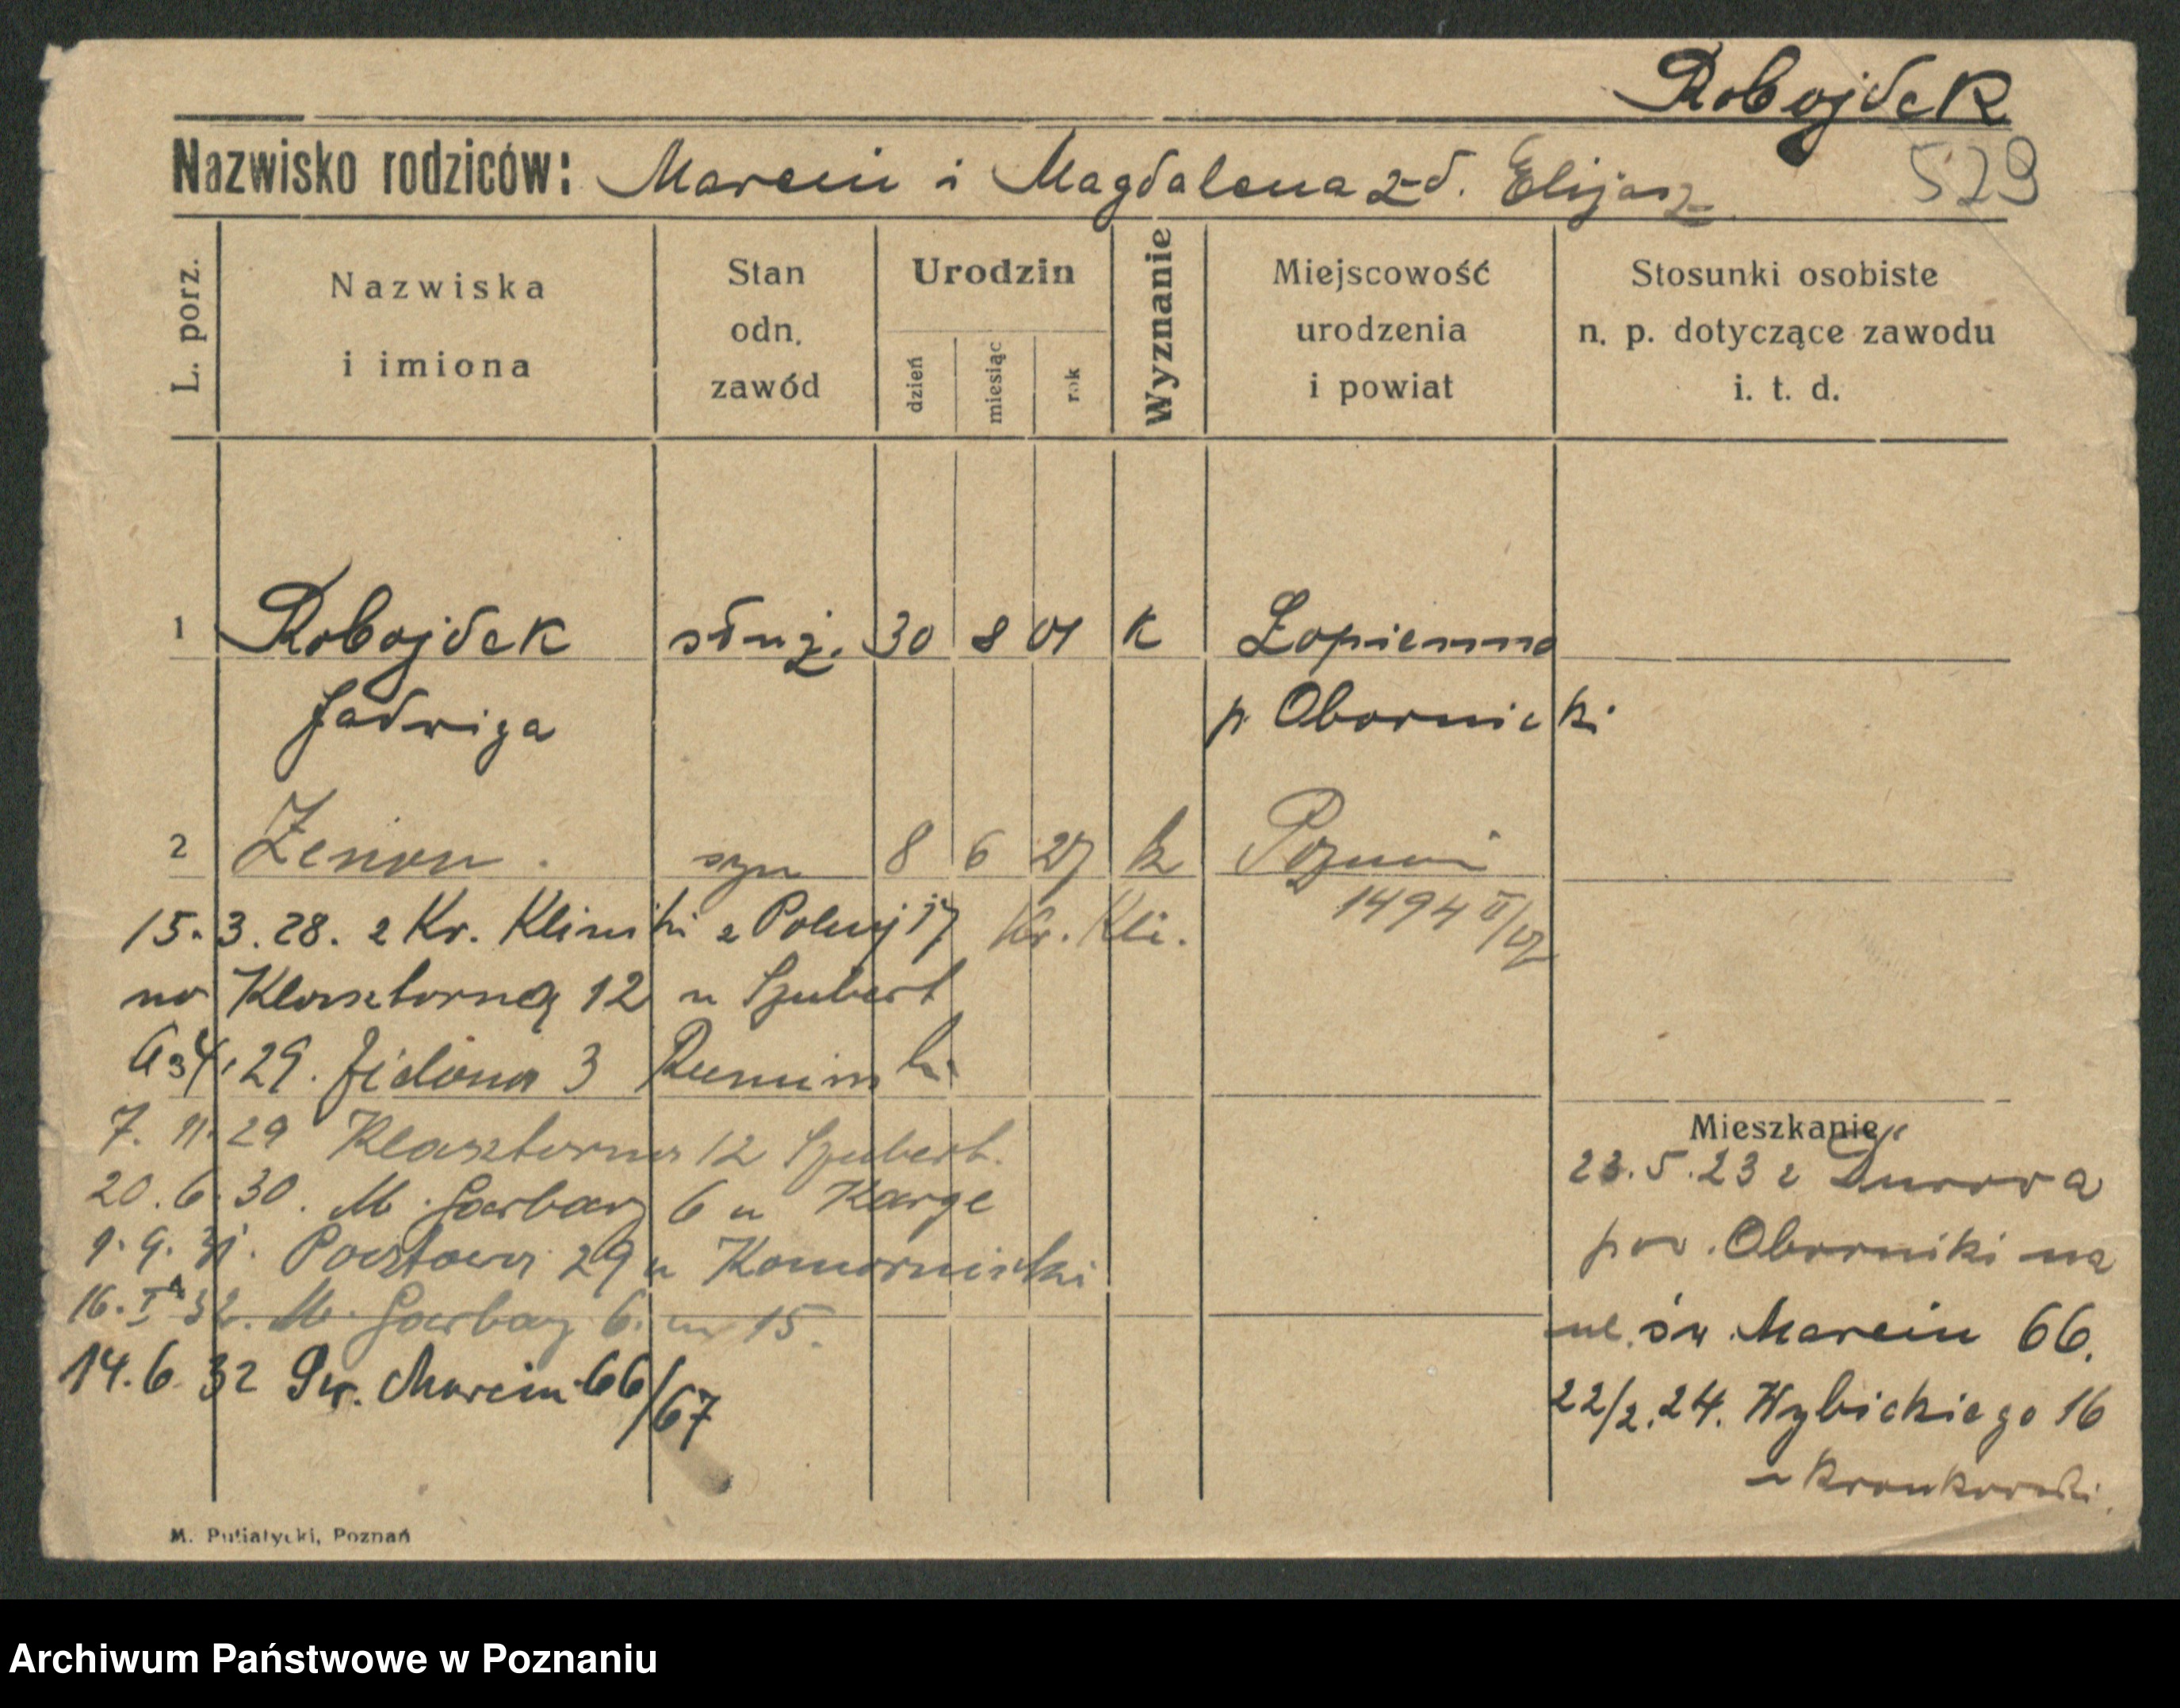 Robojdek
Nazwisko rodziców: Marcin i Magdalena z d. Elijasz
529
L. porz.
Nazwiska
i imiona
Stan
odn.
zawód
Urodzin
dzień
miesiąc
rok
Wyznanie
Miejscowość
urodzenia
i powiat
Stosunki osobiste
n. p. dotyczące zawodu
i. t. d.
1 Robojdek służ. 30 8 01 K Łopienno
Jadwiga p Obornicki
2 Zenon syn 8 6 27 k Poznań
1494 II/
15. 3. 28. z Kr. z 17 Kr. Kli.
na Klasztorną 12 u Szubert
4. 29. Zielona 3
7. 11. 29 Klasztorna 12 Szubert.
20. 6. 30. M. Garbary 6 u Karge
1. 9. 31. Pocztowa 29 u Komornicki
16. I 32. M. Garbary 6. m 15.
14. 6 32 Św. Marcin 66/67
Mieszkanie
23. 5. 23 z
pow. Oborniki na
ul. św. Marcin 66.
22/2. 24. Wybickiego 16
u
M. Putiatycki, Poznań
Archiwum Państwowe w Poznaniu